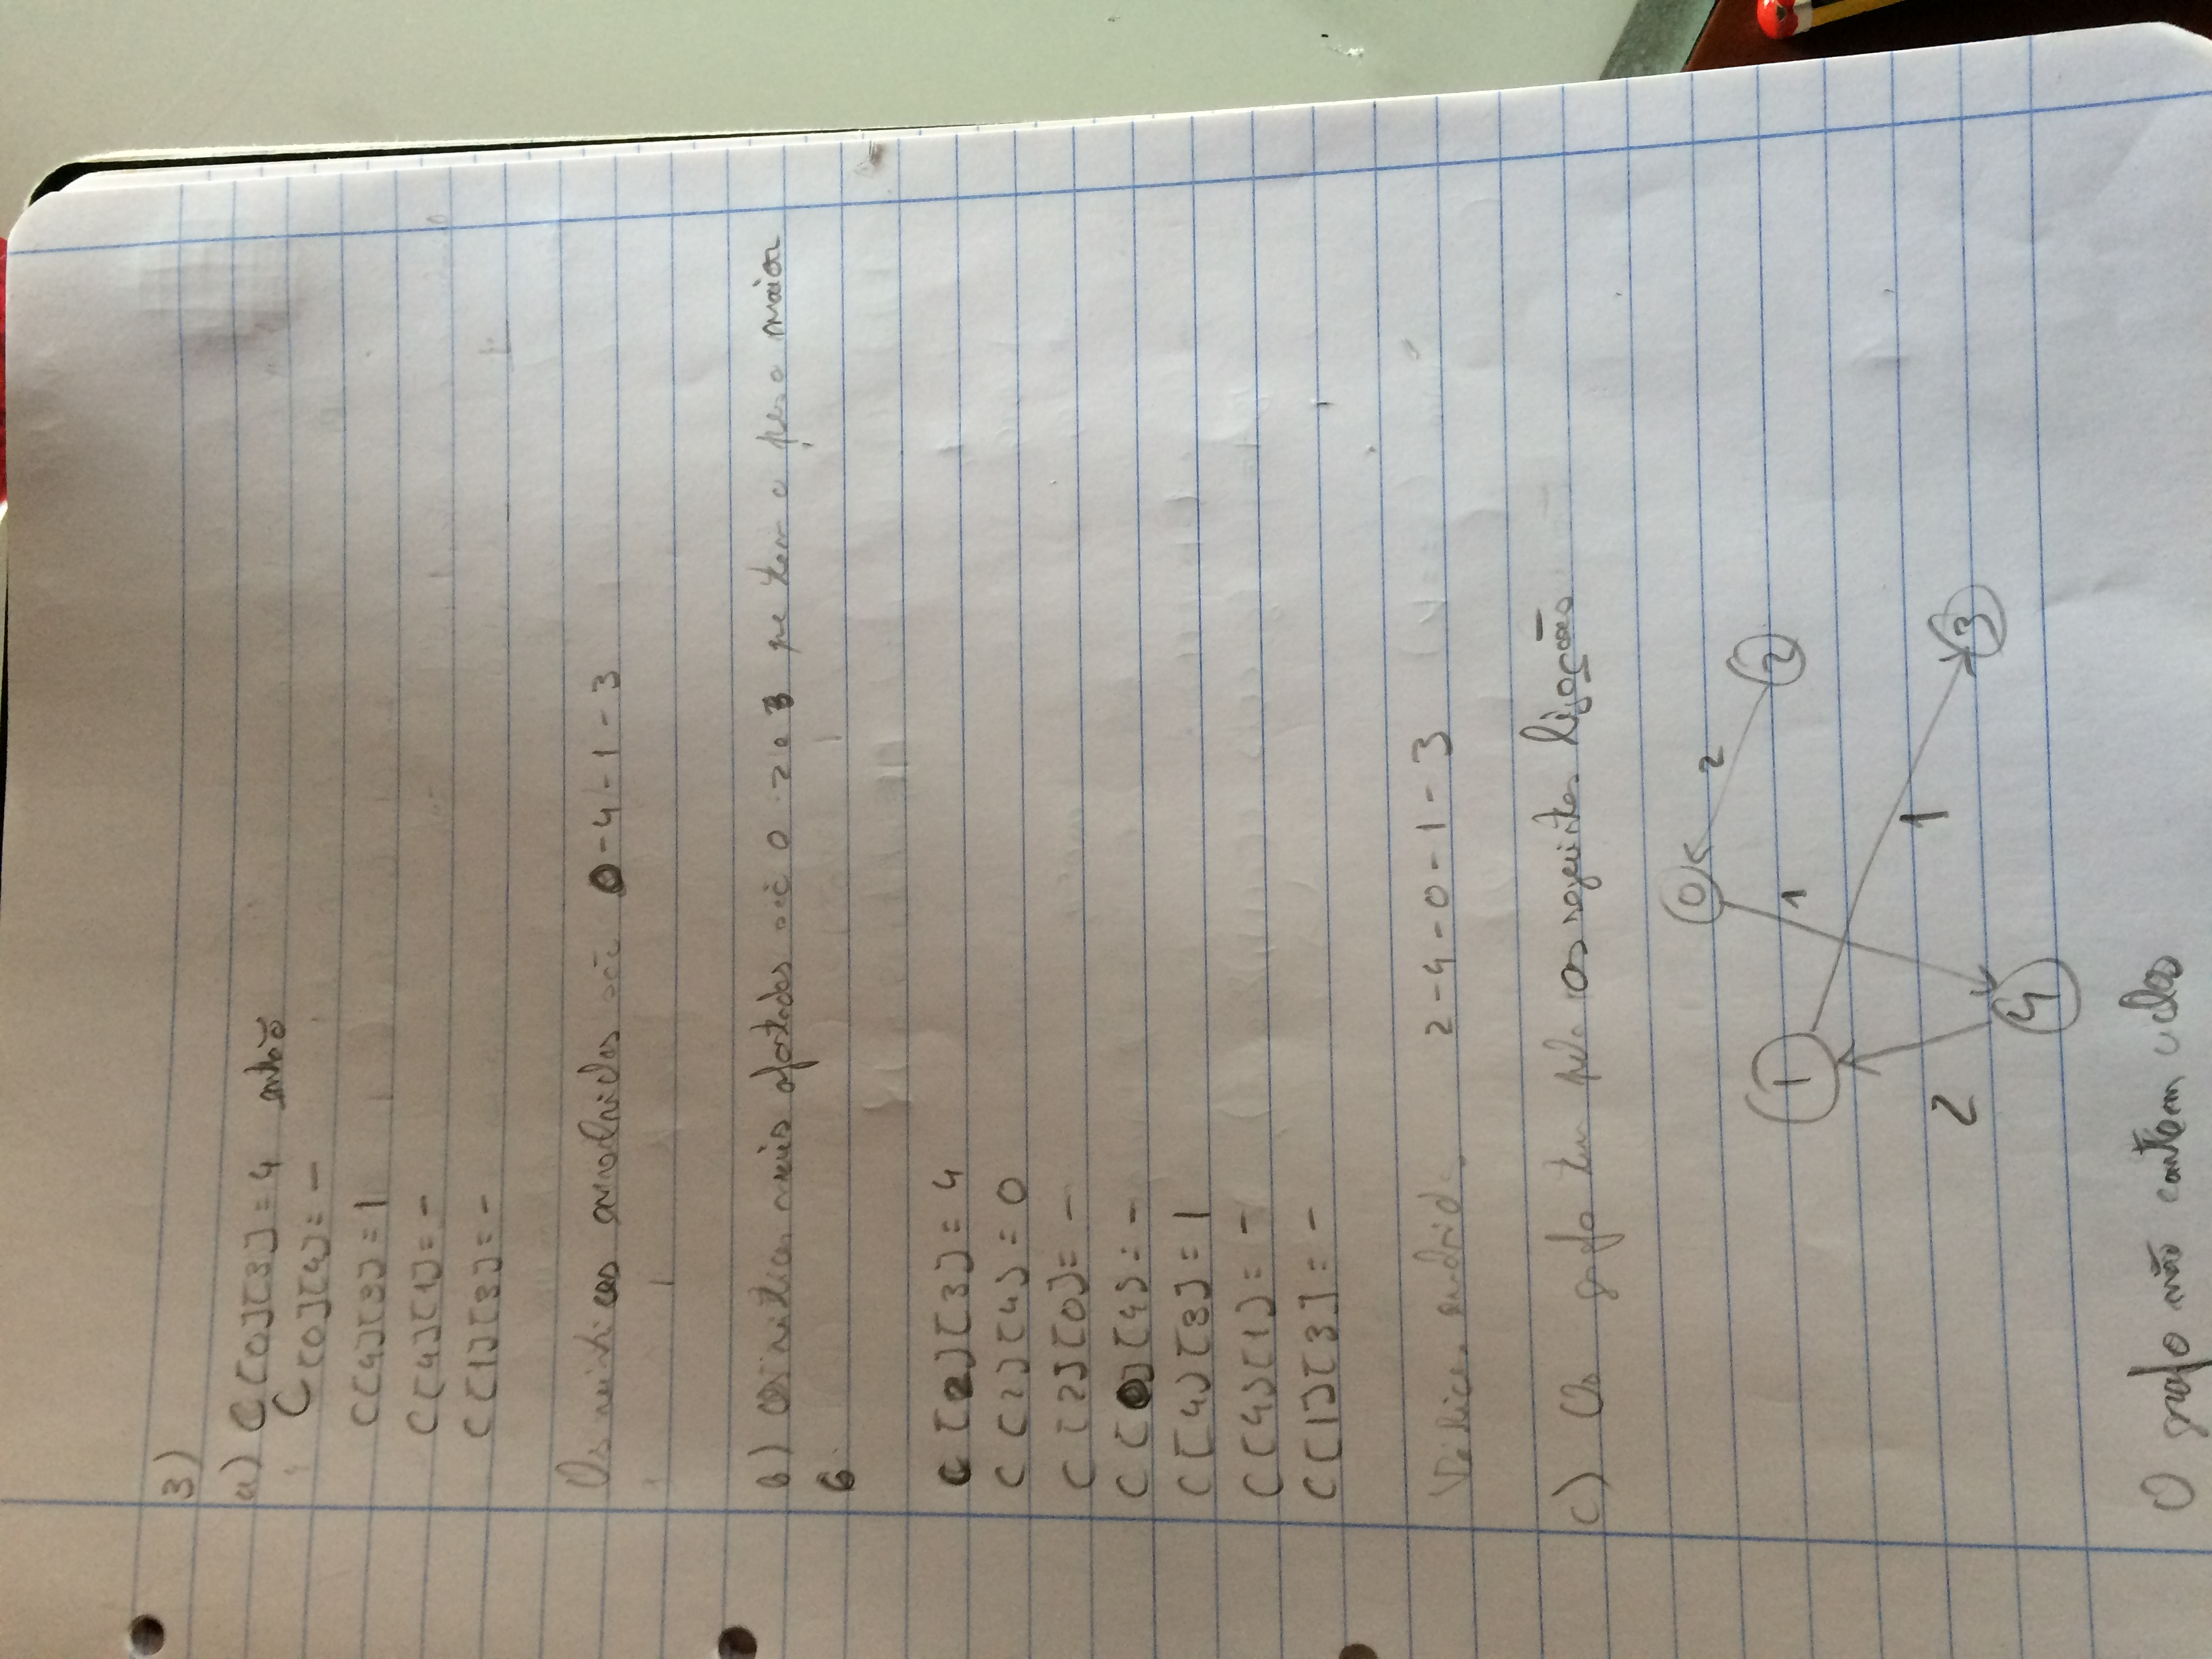 3)
a) C[0][3] = 4 então
C[0][4] = -
C[4][3] = 1
C[4][1] = -
C[1][3] = -
Os vértices envolvidos são 0-4-1-3
b) Os vértices mais afastados são o 2 e 3 que tem o peso maior
6.
C[2][3] = 4
C[2][4] = 0
C[2][0] = -
C[0][4] = -
C[4][3] = 1
C[4][1] = -
C[1][3] = -
Vértices 2-4-0-1-3
c) grafo tem as seguintes ligações
0
2
2
1
1
1
2
3
4
O grafo não contem